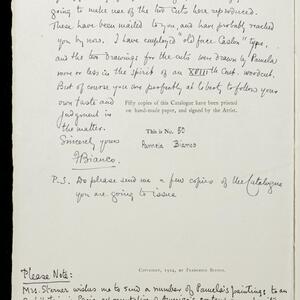 going to make use of the two cuts here reproduced.
These have been mailed to you, and have probably reached
you by now. I have employed "old face Caslon" type,
and the two drawings for the cuts were drawn by Pamela
more or less in the spirit of an XVIIIth Cent. woodcut.
But of course you are perfectly at liberty to follow your
own taste and
judgment in
the matter.
Fifty copies of this Catalogue have been printed
on hand-made paper, and signed by the Artist.
This is No. 50
Sincerely yours
Pamela Bianco
F Bianco.
P.S. Do please send me a few copies of the Catalogue
you are going to issue
Copyright, 1924, by Francesco Bianco.
Please Note:
Mrs. Sterner wishes me to send a number of Pamela's paintings to an